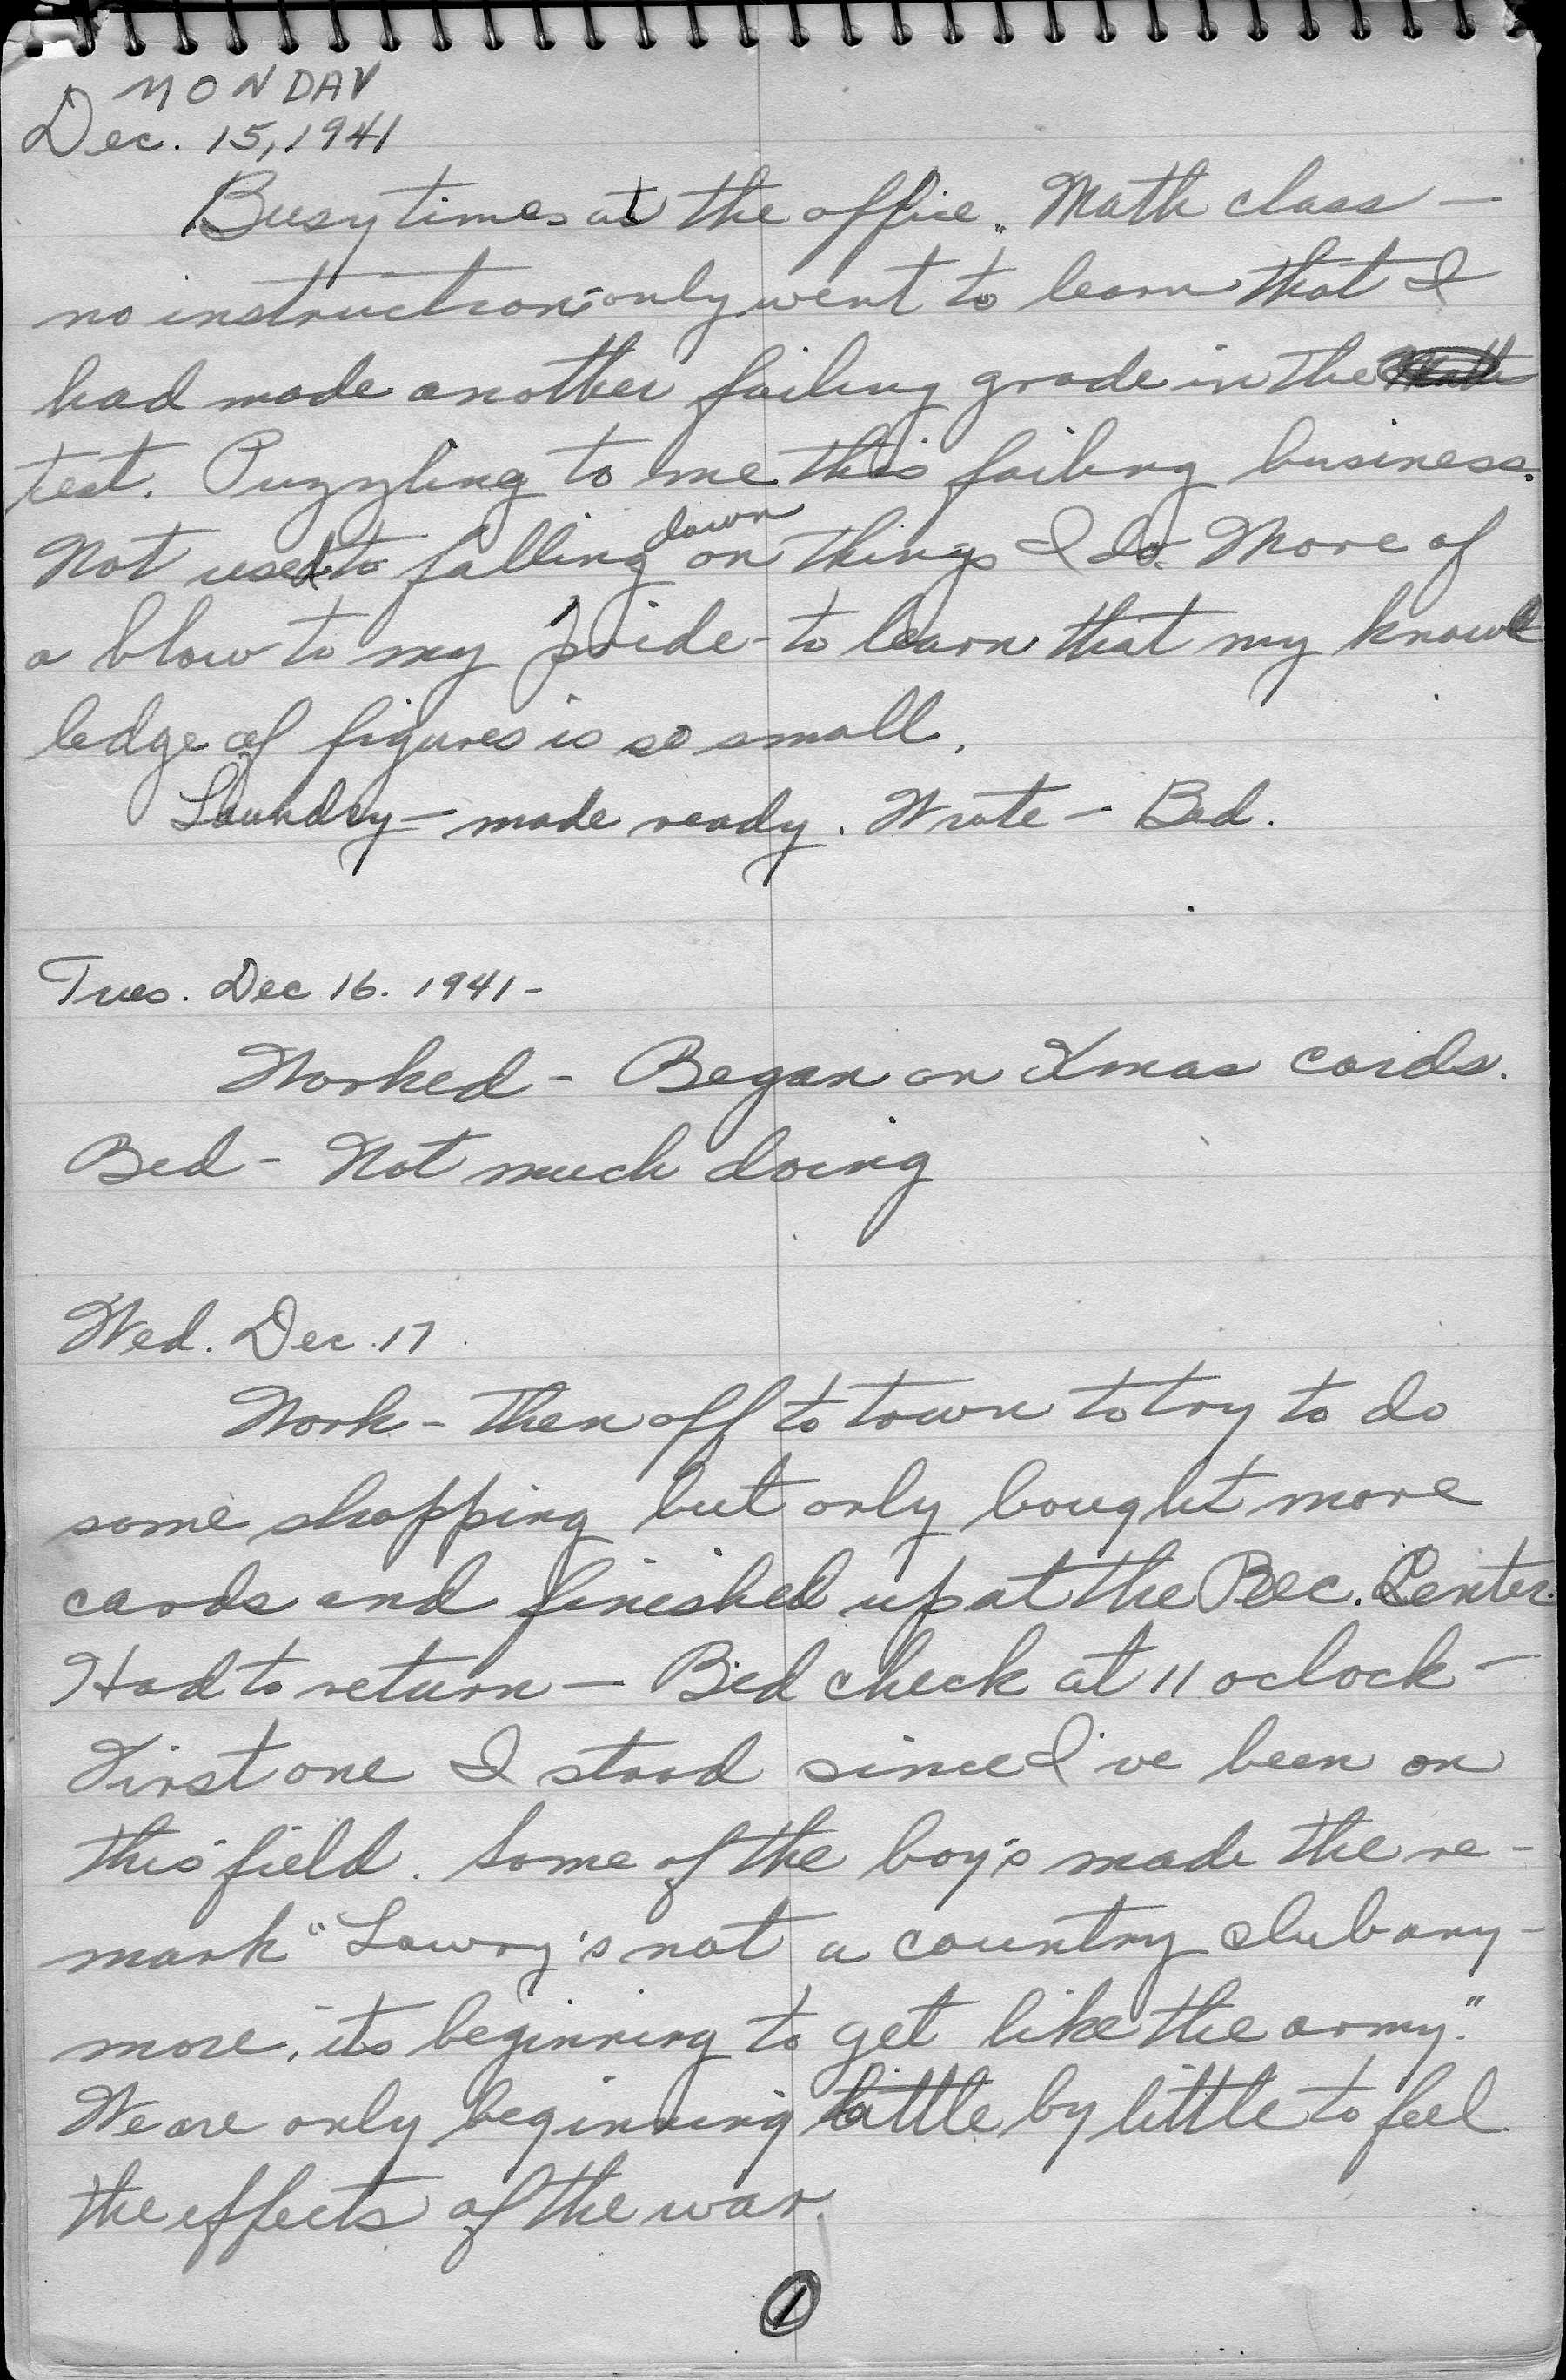 MONDAY
Dec. 15, 1941
Busy times at the office. Math class —
no instruction - only went to learn that I
had made another failing grade in the
test. Puzzling to me this failing business.
Not used to falling down on things I do. More of
a blow to my pride - to learn that my know
ledge of figures is so small.
Laundry — made ready. Wrote — Bed.
Tues. Dec 16. 1941 -
Worked - Began on Xmas cards.
Bed - Not much doing
Wed. Dec. 17
Work - then off to town to try to do
some shopping but only bought more
cards and finished up at the Rec. Center.
Had to return — Bed check at 11 oclock —
First one I stood since I've been on
this field. Some of the boy's made the re-
mark "Lowry's not a country club any-
more, its beginning to get like the army."
We are only beginning little by little to feel
the effects of the war.
1